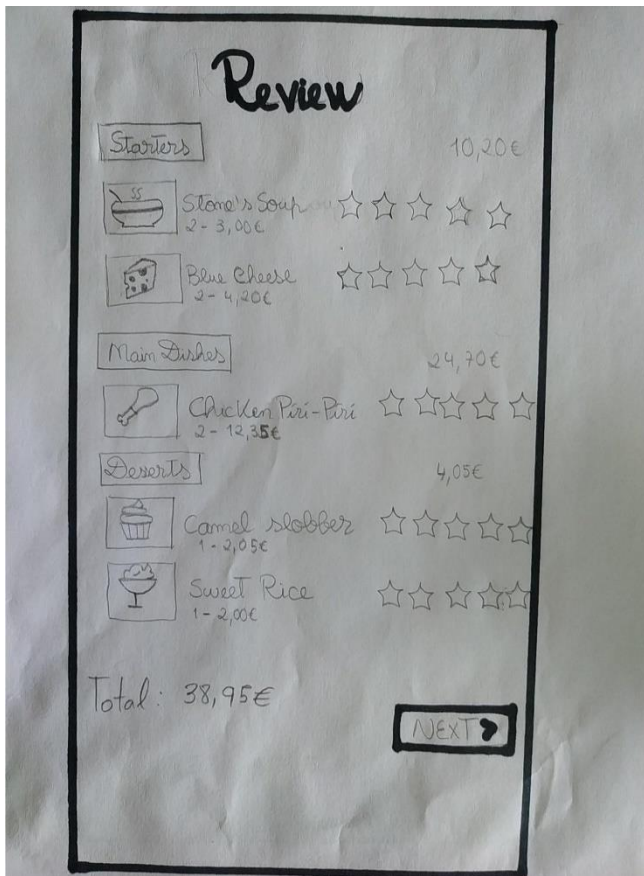 Review
Starters 10,20€
Stone's Soup
2 - 3,00€
Blue Cheese
2 - 4,20€
Main Dishes 24,70€
Chicken Piri-Piri
2 - 12,35€
Deserts 4,05€
Camel slobber
1 - 2,05€
Sweet Rice
1 - 2,00€
Total: 38,95€
NEXT >